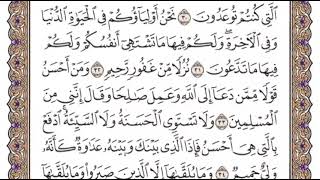 ٱلَّتِى كُنتُمْ تُوعَدُونَ ٣٠ نَحْنُ أَوْلِيَآؤُكُمْ فِى ٱلْحَيَوٰةِ ٱلدُّنْيَا
وَفِى ٱلْءَاخِرَةِ ۖ وَلَكُمْ فِيهَا مَا تَشْتَهِىٓ أَنفُسُكُمْ وَلَكُمْ
فِيهَا مَا تَدَّعُونَ ٣١ نُزُلًا مِّنْ غَفُورٍ رَّحِيمٍ ٣٢ وَمَنْ أَحْسَنُ
قَوْلًا مِّمَّن دَعَآ إِلَى ٱللَّهِ وَعَمِلَ صَٰلِحًا وَقَالَ إِنَّنِى مِنَ
ٱلْمُسْلِمِينَ ٣٣ وَلَا تَسْتَوِى ٱلْحَسَنَةُ وَلَا ٱلسَّيِّئَةُ ۚ ٱدْفَعْ
بِٱلَّتِى هِىَ أَحْسَنُ فَإِذَا ٱلَّذِى بَيْنَكَ وَبَيْنَهُۥ عَدَٰوَةٌ كَأَنَّهُۥ
وَلِىٌّ حَمِيمٌ ٣٤ وَمَا يُلَقَّىٰهَآ إِلَّا ٱلَّذِينَ صَبَرُوا۟ وَمَا يُلَقَّىٰهَآ